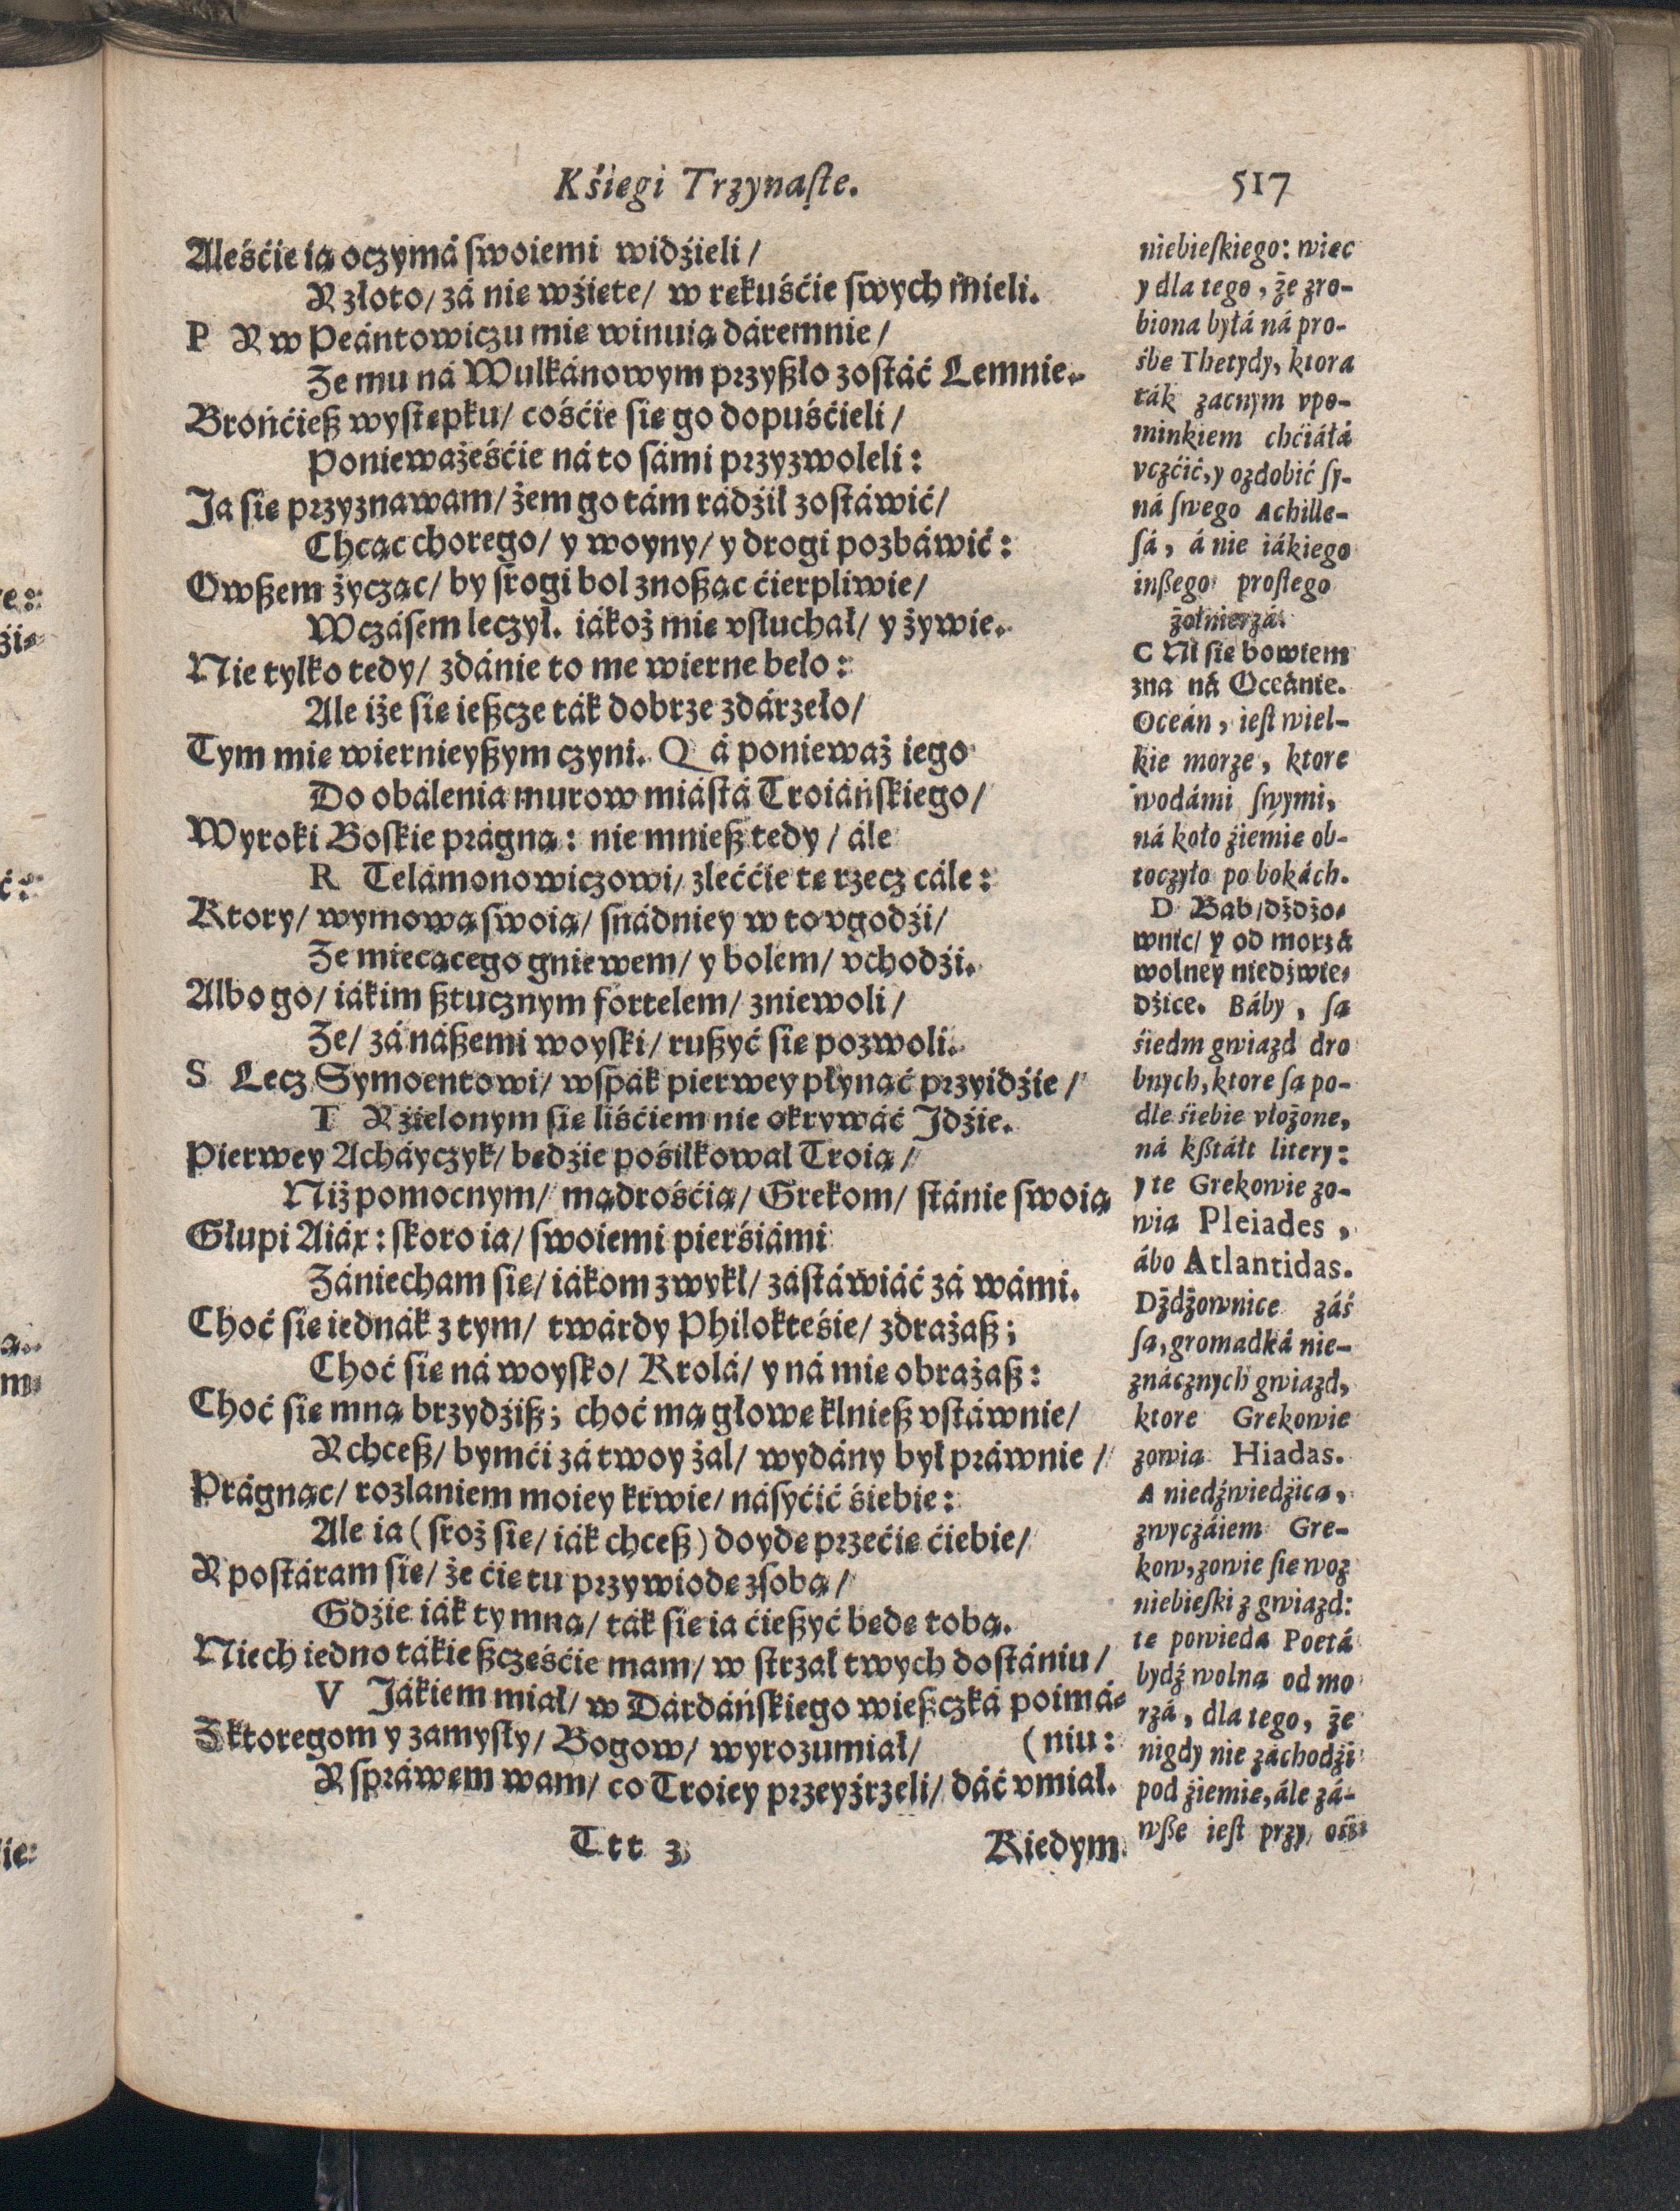 Kśiegi Trzynaſte.
517
Aleśćie ią oczymá ſwoiemi widźieli /
A złoto / zá nie wźiete / w rękuśćie ſwych mieli.
P A w Peántowiczu mie winuią dáremnie /
Że mu ná Wulkánowym przyßło zoſtáć Lemnie.
Brońćieß wyſtępku / cośćie się go dopuśćieli /
Ponieważeśćie ná to ſámi przyzwoleli:
Ja się przyznawam / żem go tám rádźił zoſtáwić /
Chcąc chorego / y woyny / y drogi pozbáwić:
Owßem życząc / by ſrogi bol znoßąc ćierpliwie /
Wczáſem leczył. iákoż mie vſłuchał / y żywie.
Nie tylko tedy / zdánie to me wierne beło:
Ale iże się ießcze ták dobrze zdárzeło /
Tym mie wiernieyßym czyni. Q á ponieważ iego
Do obálenia murow miáſtá Troiáńſkiego /
Wyroki Boſkie prágną: nie mnieß tedy / ále
R Telámonowiczowi / zleććie tę rzecz cále:
Ktory / wymową ſwoią / snádniey w to vgodźi /
Że miecącego gniewem / y bolem / vchodźi.
Albo go / iákim ßtucznym fortelem / zniewoli /
Że / zá náßemi woyſki / rußyć się pozwoli.
S Lecz Symoentowi / wſpák pierwey płynąć przyidźie /
T A źielonym się liśćiem nie okrywáć Jdźie.
Pierwey Acháyczyk / będźie pośiłkował Troią /
Niż pomocnym / mądrośćią / Grekom / ſtánie ſwoią
Głupi Aiáx: ſkoro ia / ſwoiemi pierśiámi
Zániecham się / iákom zwykł / záſtáwiáć zá wámi.
Choć się iednák z tym / twárdy Philokteśie / zdrażaß;
Choć się ná woyſko / Krolá / y ná mie obrażaß:
Choć się mną brzydźiß; choć mą głowę klnieß vſtáwnie /
A chceß / bymći zá twoy żal / wydány był práwnie /
Prágnąc / rozlaniem moiey krwie / náſyćić śiebie:
Ale ia ( ſroż się / iák chceß ) doydę przećie ćiebie /
A poſtáram się / że ćię tu przywiodę z ſobą /
Gdźie iák ty mną / ták się ia ćießyć będę tobą.
Niech iedno tákie ßczęśćie mam / w ſtrzał twych doſtániu /
V Jákiem miał / w Dárdáńſkiego wießczká poimá-
(niu:
Z ktoregom y zamyſły / Bogow / wyrozumiał /
A spráwęm wam / co Troiey przeyźrzeli / dáć vmiał.
Ttt 3
Kiedym
niebieſkiego: więc
y dla tego, że zro-
biona byłá ná pro-
śbę Thetydy, ktora
ták zacnym vpo-
minkiem chćiáłá
vczćić, y ozdobić ſy-
ná ſwego Achille-
ſá, á nie iákiego
inßego proſtego
żołnierzá.
C Ni się bowiem
zna ná Oceánie.
Oceán, ieſt wiel-
kie morze, ktore
wodámi ſwymi,
ná koło źiemię ob-
toczyło po bokách.
D Bab / dżdżo-
wnic / y od morzá
wolney niedźwie-
dźice. Báby, ſą
śiedm gwiazd dro
bnych, ktore ſą po-
dle śiebie vłożone,
ná kßtáłt litery:
y te Grekowie zo-
wią Pleiades,
ábo Atlantidas.
Dżdżownice záś
ſą, gromadká nie-
znácznych gwiazd,
ktore Grekowie
zowią Hiadas.
A niedźwiedźica,
zwyczáiem Gre-
kow, zowie się woz
niebieſki z gwiazd:
tę powieda Poetá
bydź wolną od mo
rzá, dla tego, że
nigdy nie záchodźi
pod źiemię, ále zá-
wße ieſt przy ośi